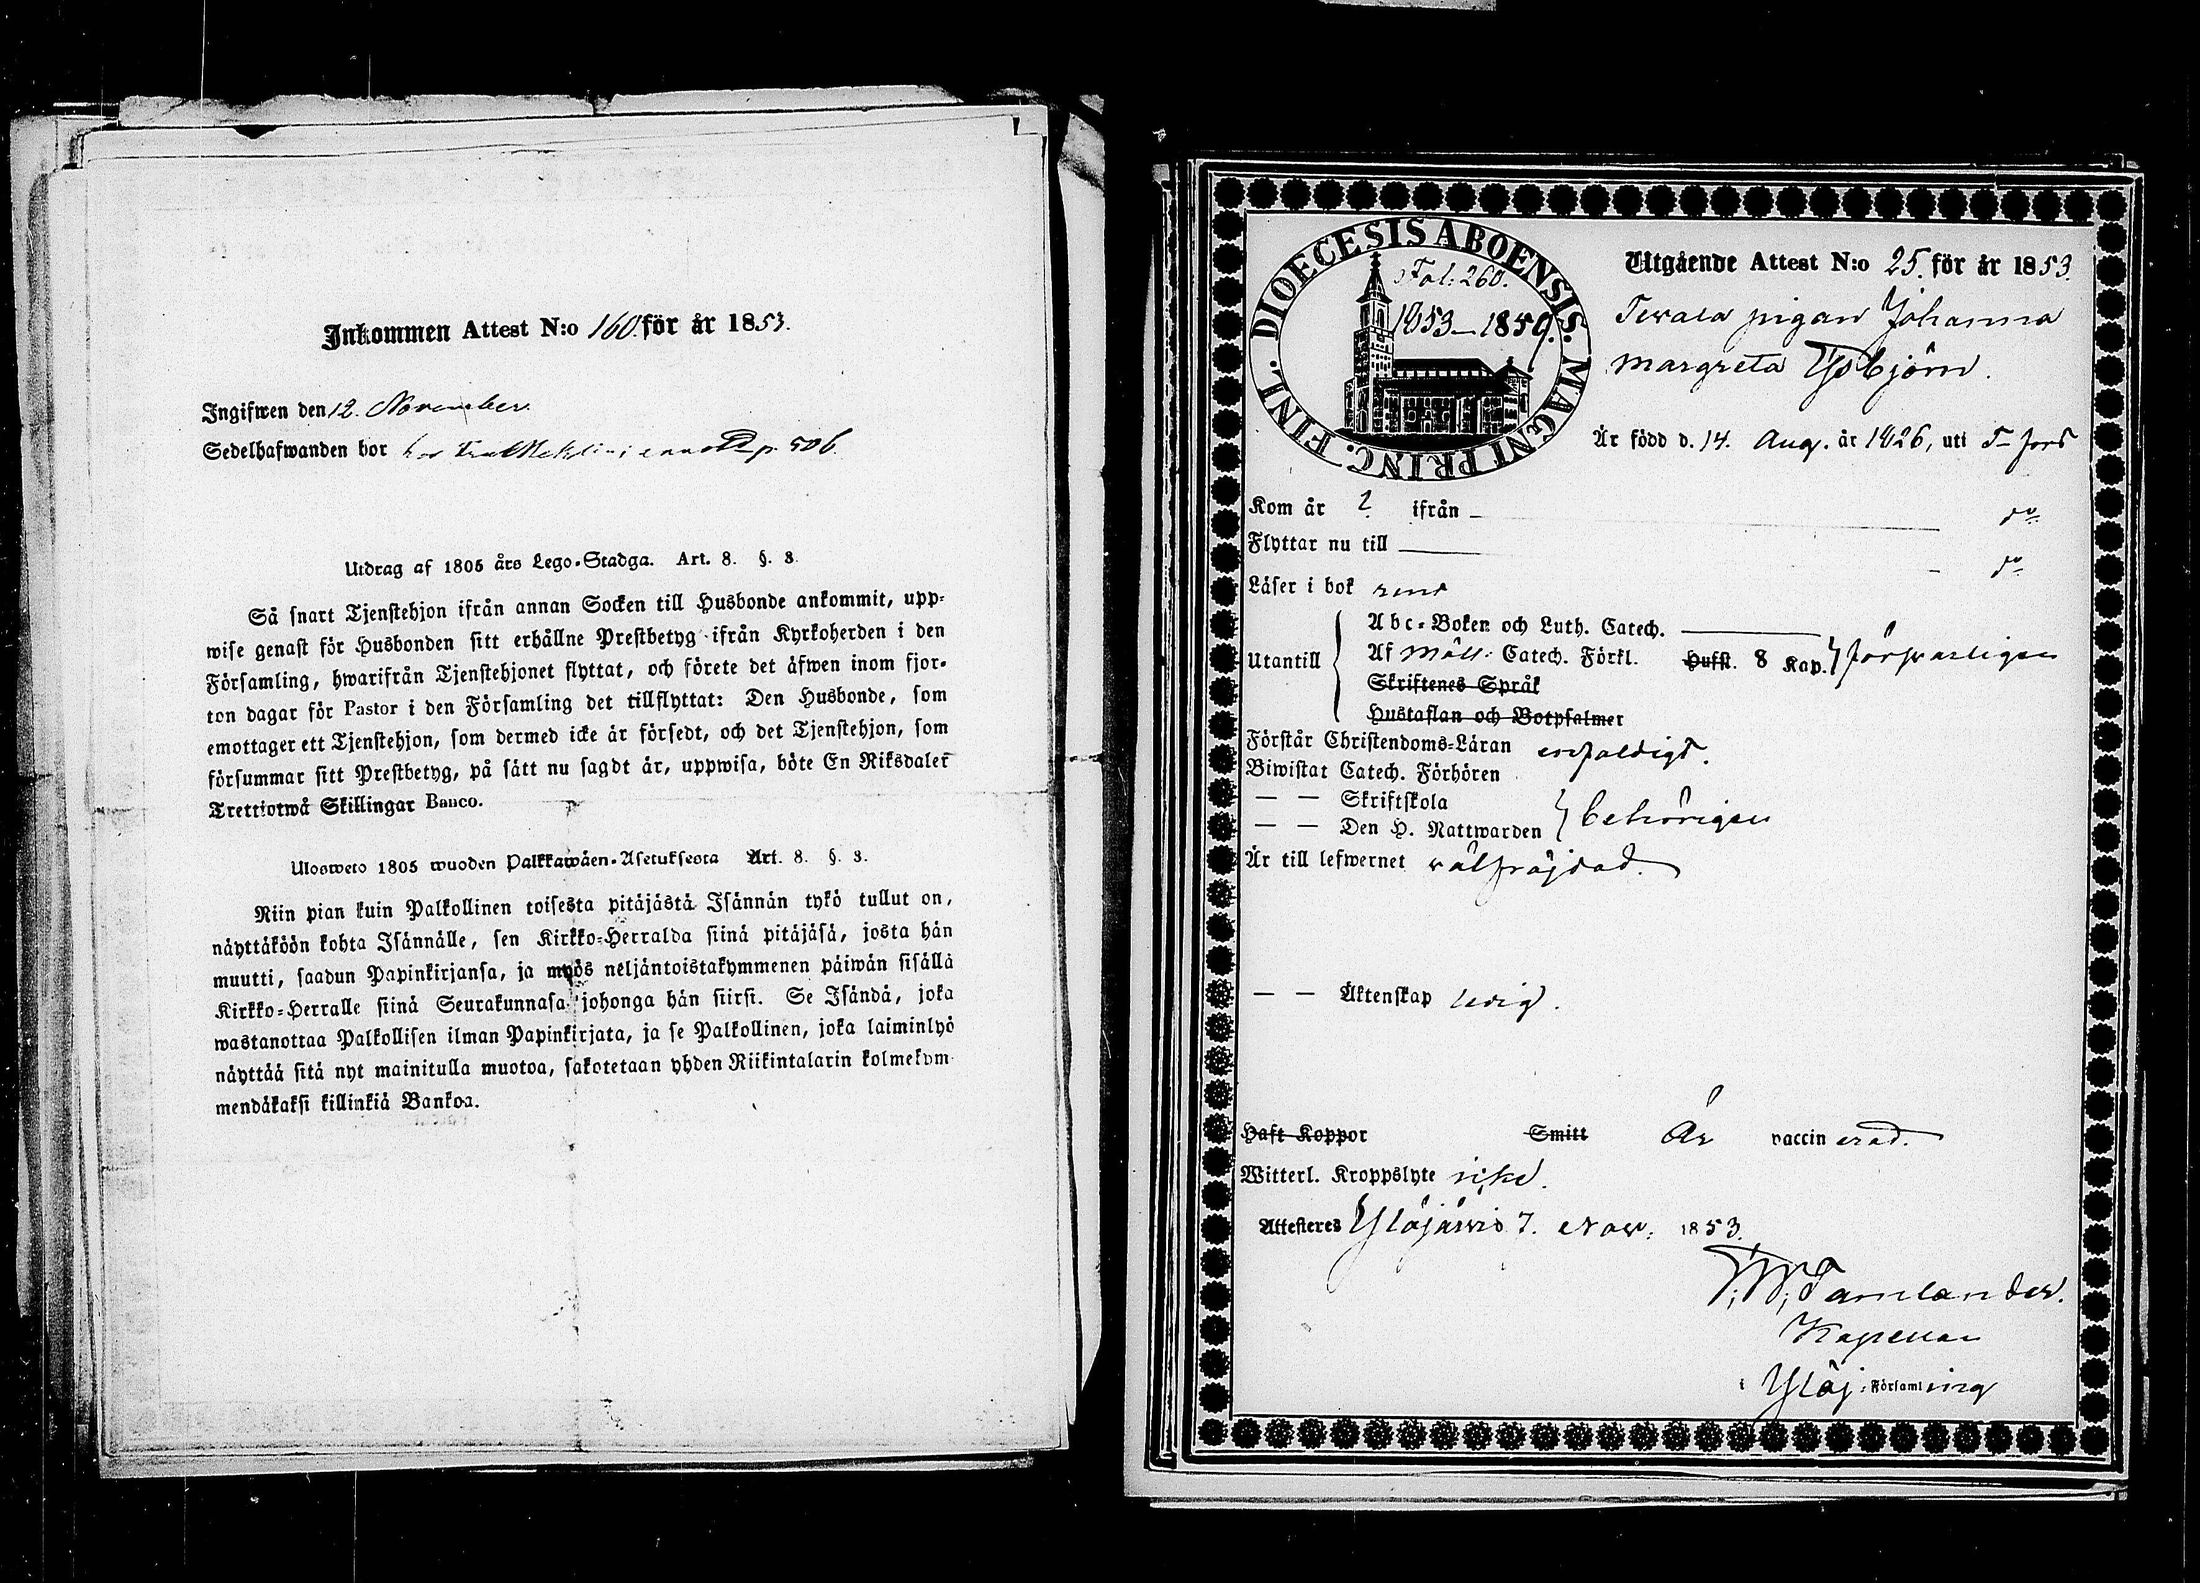 Inkommen Attest N:o 160. för år 1853.
Ingifwen den 12. November.
Sedelhafwanden bor hos p. 506.
Utdrag af 1805 års Lego-Stadga. Art. 8. §. 8.
Så snart Tjenstehjon ifrån annan Socken till Husbonde ankommit, upp-
wise genast för Husbonden sitt erhållne Prestbetyg ifrån Kyrkoherden i den
Församling, hwarifrån Tjenstehjonet flyttat, och förete det äfwen inom fjor-
ton dagar för Pastor i den Församling det tillflyttat: Den Husbonde, som
emottager ett Tjenstehjon, som dermed icke är försedt, och det Tjenstehjon, som
försummar sitt Prestbetyg, på sätt nu sagdt är, uppwisa, böte En Riksdaler
Trettiotwå Skillingar Banco.
Ulosweto 1805 wuoden Palkkawäen-Asetuksesta Art. 8. §. 8.
Niin pian kuin Palkollinen toisesta pitäjästä Isännän tykö tullut on,
näyttäköön kohta Isännälle, sen Kirkko-Herralda siinä pitäjäsä, josta hän
muutti, saadun Papinkirjansa, ja myös neljäntoistakymmenen päiwän sisällä
Kirkko-Herralle siinä Seurakunnasa johonga hän siirsi. Se Isändä, joka
wastanottaa Palkollisen ilman Papinkirjata, ja se Palkollinen, joka laiminlyö
näyttää sitä nyt mainitulla muotoa, sakotetaan yhden Riikintalarin kolmekym
mendäkaksi killinkiä Bankoa.
DIOECESIS ABOENSIS. MAGNI PRINC. FINL.
Fol: 260.
1853–1859.
Utgående Attest N:o 25. för år 1853.
pigan Johanna
Margreta Ysbjörn.
Är född d. 14. Aug. år 1826, uti
Kom år ? ifrån — do
Flyttar nu till — do
Läser i bok rent
Utantill
Abc-Boken och Luth. Catech.
Af Möll: Catech. Förkl. Husst. 8 Kap. försvarligen
Skriftenes Språk
Hustaflan och Botpsalmer
Förstår Christendoms-Läran enfaldigt.
Biwistat Catech. Förhören
— — Skriftskola
— — Den H. Nattwarden behörigen
Är till lefwernet välfräjdad.
— — Äktenskap ledig.
Haft Koppor Smitt Är vaccinerad.
Witterl. Kroppslyte icke.
Attesteres Ylöjärvis 7. Nov. 1853.
Tamlander.
Kapellan
i Ylöj: Församling